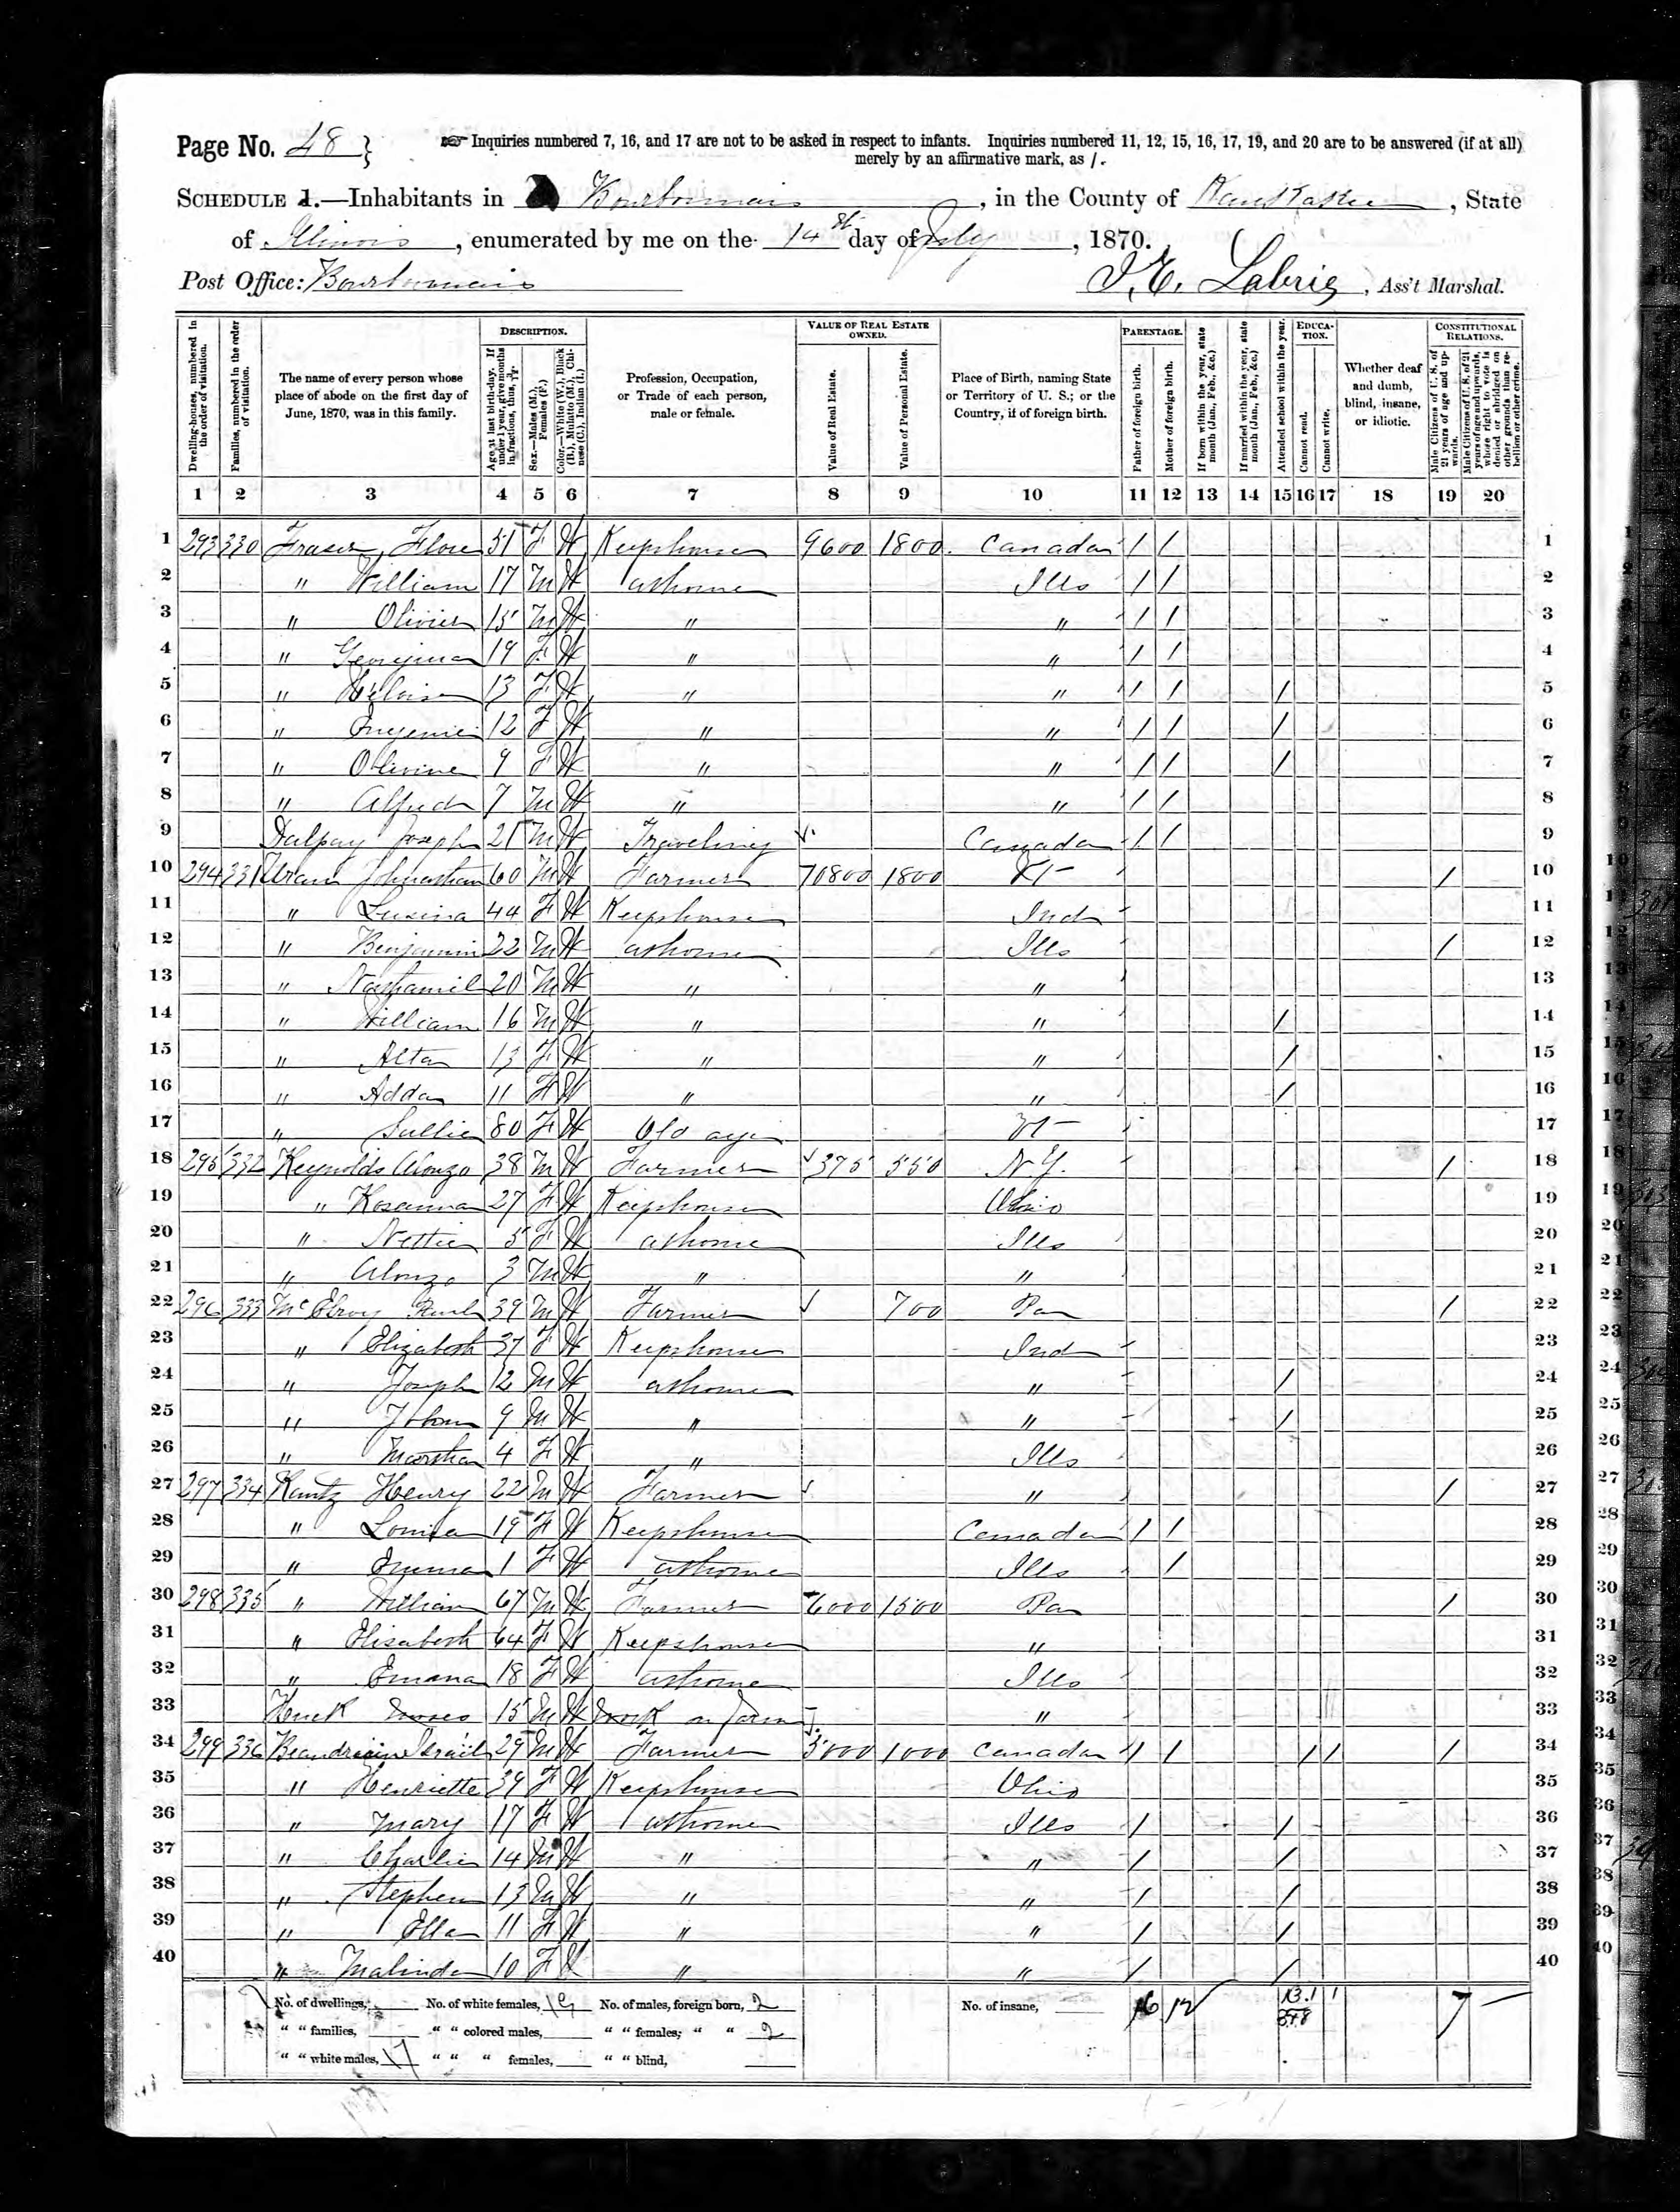 Page No. 48 }
Inquiries numbered 7, 16, and 17 are not to be asked in respect to infants. Inquiries numbered 11, 12, 15, 16, 17, 19, and 20 are to be answered (if at all)
merely by an affirmative mark, as /.
SCHEDULE 1.—Inhabitants in Bourbonnais, in the County of Kankakee, State
of Illinois, enumerated by me on the 14th day of July, 1870.
Post Office: Bourbonnais
Labrie, Ass't Marshal.
Dwelling-houses, numbered in the order of visitation.
Families, numbered in the order of visitation.
The name of every person whose place of abode on the first day of June, 1870, was in this family.
DESCRIPTION.
Age at last birth-day. If under 1 year, give months in fractions, thus,
Sex.—Males (M.), Females (F.)
Color.—White (W.), Black (B.), Mulatto (M.), Chinese (C.), Indian (I.)
Profession, Occupation, or Trade of each person, male or female.
VALUE OF REAL ESTATE OWNED.
Value of Real Estate.
Value of Personal Estate.
Place of Birth, naming State or Territory of U. S.; or the Country, if of foreign birth.
PARENTAGE.
Father of foreign birth.
Mother of foreign birth.
If born within the year, state month (Jan., Feb., &c.)
If married within the year, state month (Jan., Feb., &c.)
Attended school within the year.
EDUCATION.
Cannot read.
Cannot write.
Whether deaf and dumb, blind, insane, or idiotic.
CONSTITUTIONAL RELATIONS.
Male Citizens of U. S. of 21 years of age and upwards.
Male Citizens of U. S. of 21 years of age and upwards, whose right to vote is denied or abridged on other grounds than rebellion or other crime.
1 2 3 4 5 6 7 8 9 10 11 12 13 14 15 16 17 18 19 20
1 293 330 Fraser, Flore 51 F W Keeps house 9600 1800 Canada / / 1
2 " William 17 M W at home Ills / / 2
3 " Olivier 15 M W " " / / 3
4 " 19 F W " " / / 4
5 " 13 F W " " / / / 5
6 " 12 F W " " / / / 6
7 " Olivine 9 F W " " / / / 7
8 " Alfred 7 M W " " / / 8
9 Joseph 21 M W Traveling Canada / / 9
10 294 331 60 M W Farmer 10800 1800 / 10
11 " 44 F W Keeps house Ind 11
12 " Benjamin 22 M W at home Ills / 12
13 " Nathaniel 20 M W " " 13
14 " William 16 M W " " / 14
15 " Alta 13 F W " " / 15
16 " Adda 11 F W " " / 16
17 " Sallie 80 F W Old age 17
18 295 332 Reynolds Alonzo 38 M W Farmer 375 550 N Y. / 18
19 " Rosanna 27 F W Keeps house Ohio 19
20 " Nettie 5 F W at home Ills 20
21 " Alonzo 3 M W " " 21
22 296 333 McElroy 39 M W Farmer 700 Pa / 22
23 " Elizabeth 37 F W Keeps house Ind 23
24 " Joseph 12 M W at home " / 24
25 " John 9 M W " " / 25
26 " Martha 4 F W " Ills 26
27 297 334 Kantz Henry 22 M W Farmer " / 27
28 " Louisa 19 F W Keeps house Canada / / 28
29 " Emma 1 F W at home Ills / 29
30 298 335 " William 67 M W Farmer 6000 1500 Pa / 30
31 " Elisabeth 64 F W Keeps house " 31
32 " 18 F W at home Ills 32
33 Moses 15 M W Work on farm " 33
34 299 336 Israil 29 M W Farmer 5000 1000 Canada / / / / / 34
35 " Henriette 39 F W Keeps house Ohio 35
36 " Mary 17 F W at home Ills / / 36
37 " Charlie 14 M W " " / / 37
38 " Stephen 13 M W " " / / 38
39 " Ella 11 F W " " / / 39
40 " Malinda 10 F W " " / / 40
No. of dwellings, No. of white females, 19 No. of males, foreign born, 2 No. of insane, 16 12 13 1 1 7
" " families, " " colored males, " " females, " " 2
" " white males, 17 " " " females, " " blind,